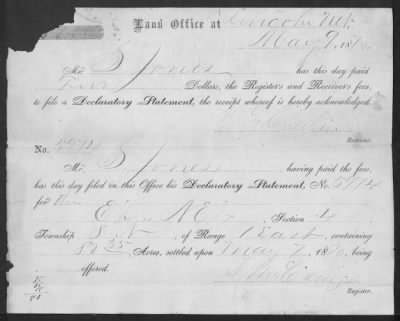 Land Office at Lincoln Neb.
May 9, 1870.
Mr. S Jones has this day paid
Two Dollars, the Register's and Receiver's fees,
to file a Declaratory Statement, the receipt whereof is hereby acknowledged.
Receiver.
No. 5974
Mr. S Jones having paid the fees,
has this day filed in this Office his Declaratory Statement, No 5974
for the
E½ NE¼ Section 4
Township 8 N, of Range 1 East, containing
Acres, settled upon May 7, 1870, being
offered.
Register.